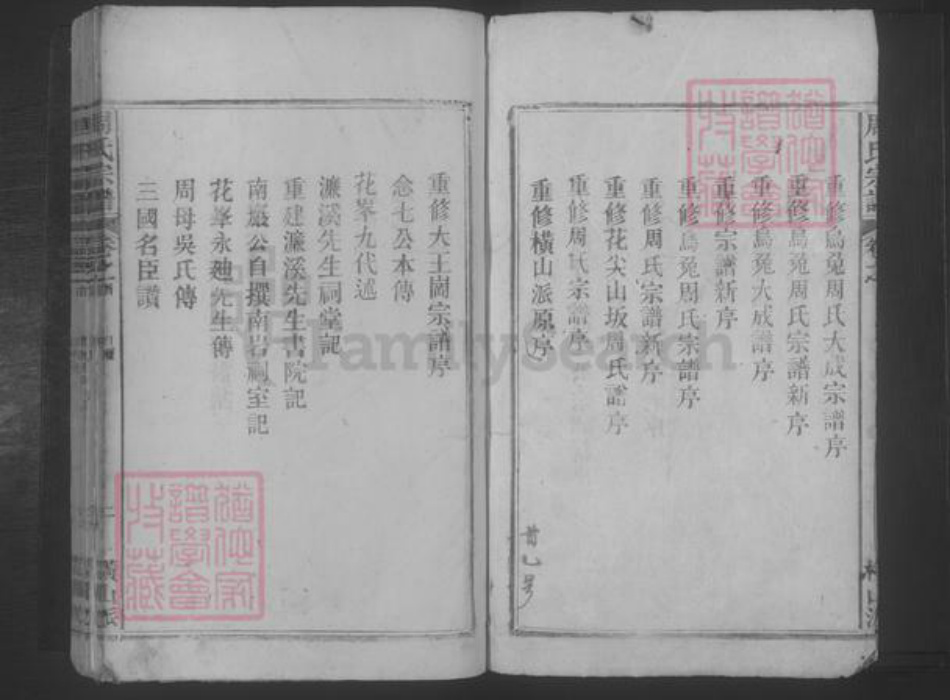 重修烏兎周氏大成宗譜序
重修烏兎周氏宗譜新序
重修烏兎大成譜序
重修宗譜新序
重修烏兎周氏宗譜序
重修周氏宗譜新序
重修花尖山坂周氏譜序
重修周氏宗譜序
重修橫山派原序
重修大王崗宗譜序
念七公本傳
花峯九代述
濂溪先生祠堂記
重建濂溪先生書院記
南巖公自撰南岩祠室記
花峯永廸先生傳
周母吳氏傳
三國名臣讚
周氏宗譜
橫山派
猶他家譜學會特藏
猶他家譜學會特藏
FamilySearch